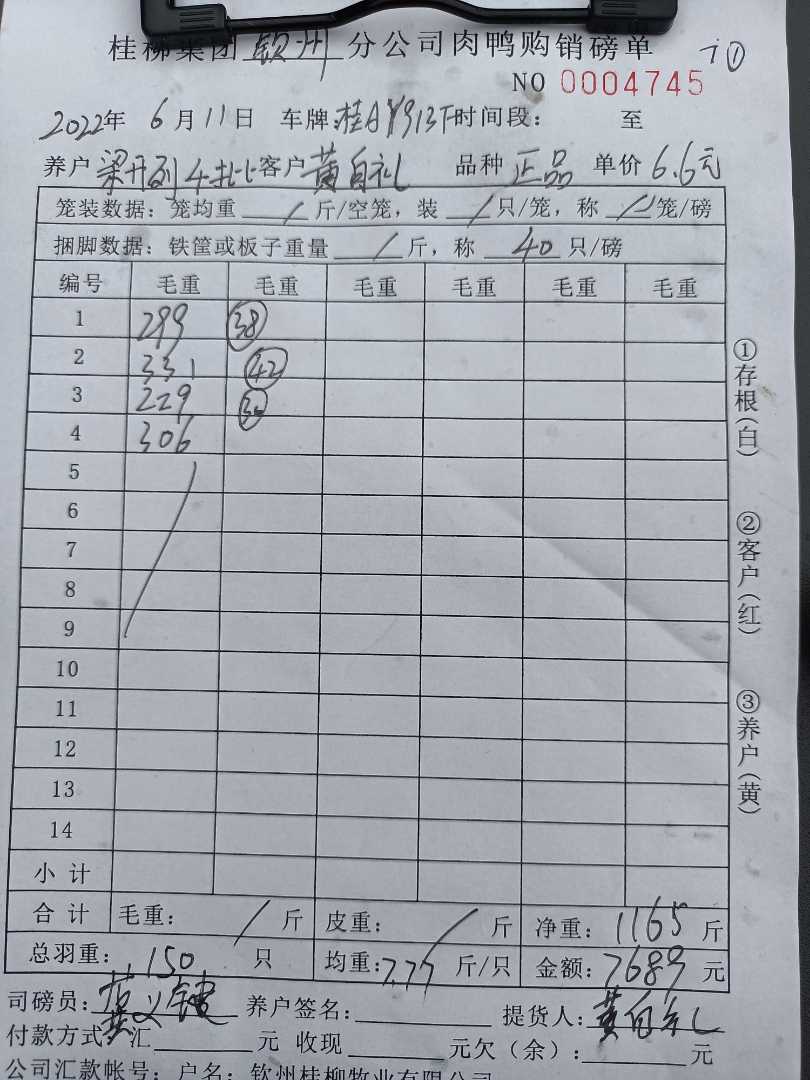 桂柳集团钦州分公司肉鸭购销磅单
NO 0004745
2022年6月11日 车牌:桂A 时间段: 至
养户 梁开列4批 客户 黄自礼 品种 正品 单价 6.6元
笼装数据: 笼均重 / 斤/空笼, 装 / 只/笼, 称 / 笼/磅
捆脚数据: 铁筐或板子重量 / 斤, 称 40 只/磅
编号 毛重 毛重 毛重 毛重 毛重 毛重
1 299 38
2 331 42
3 229 30
4 306
5
6
7
8
9
10
11
12
13
14
小计
合计 毛重: / 斤 皮重: / 斤 净重: 1165 斤
总羽重: 150 只 均重: 7.77 斤/只 金额: 7689 元
司磅员: 养户签名: 提货人: 黄自礼
付款方式: 汇 元 收现 元欠(余): 元
公司汇款帐号: 户名: 钦州桂柳牧业有限公司
①存根(白)
②客户(红)
③养户(黄)